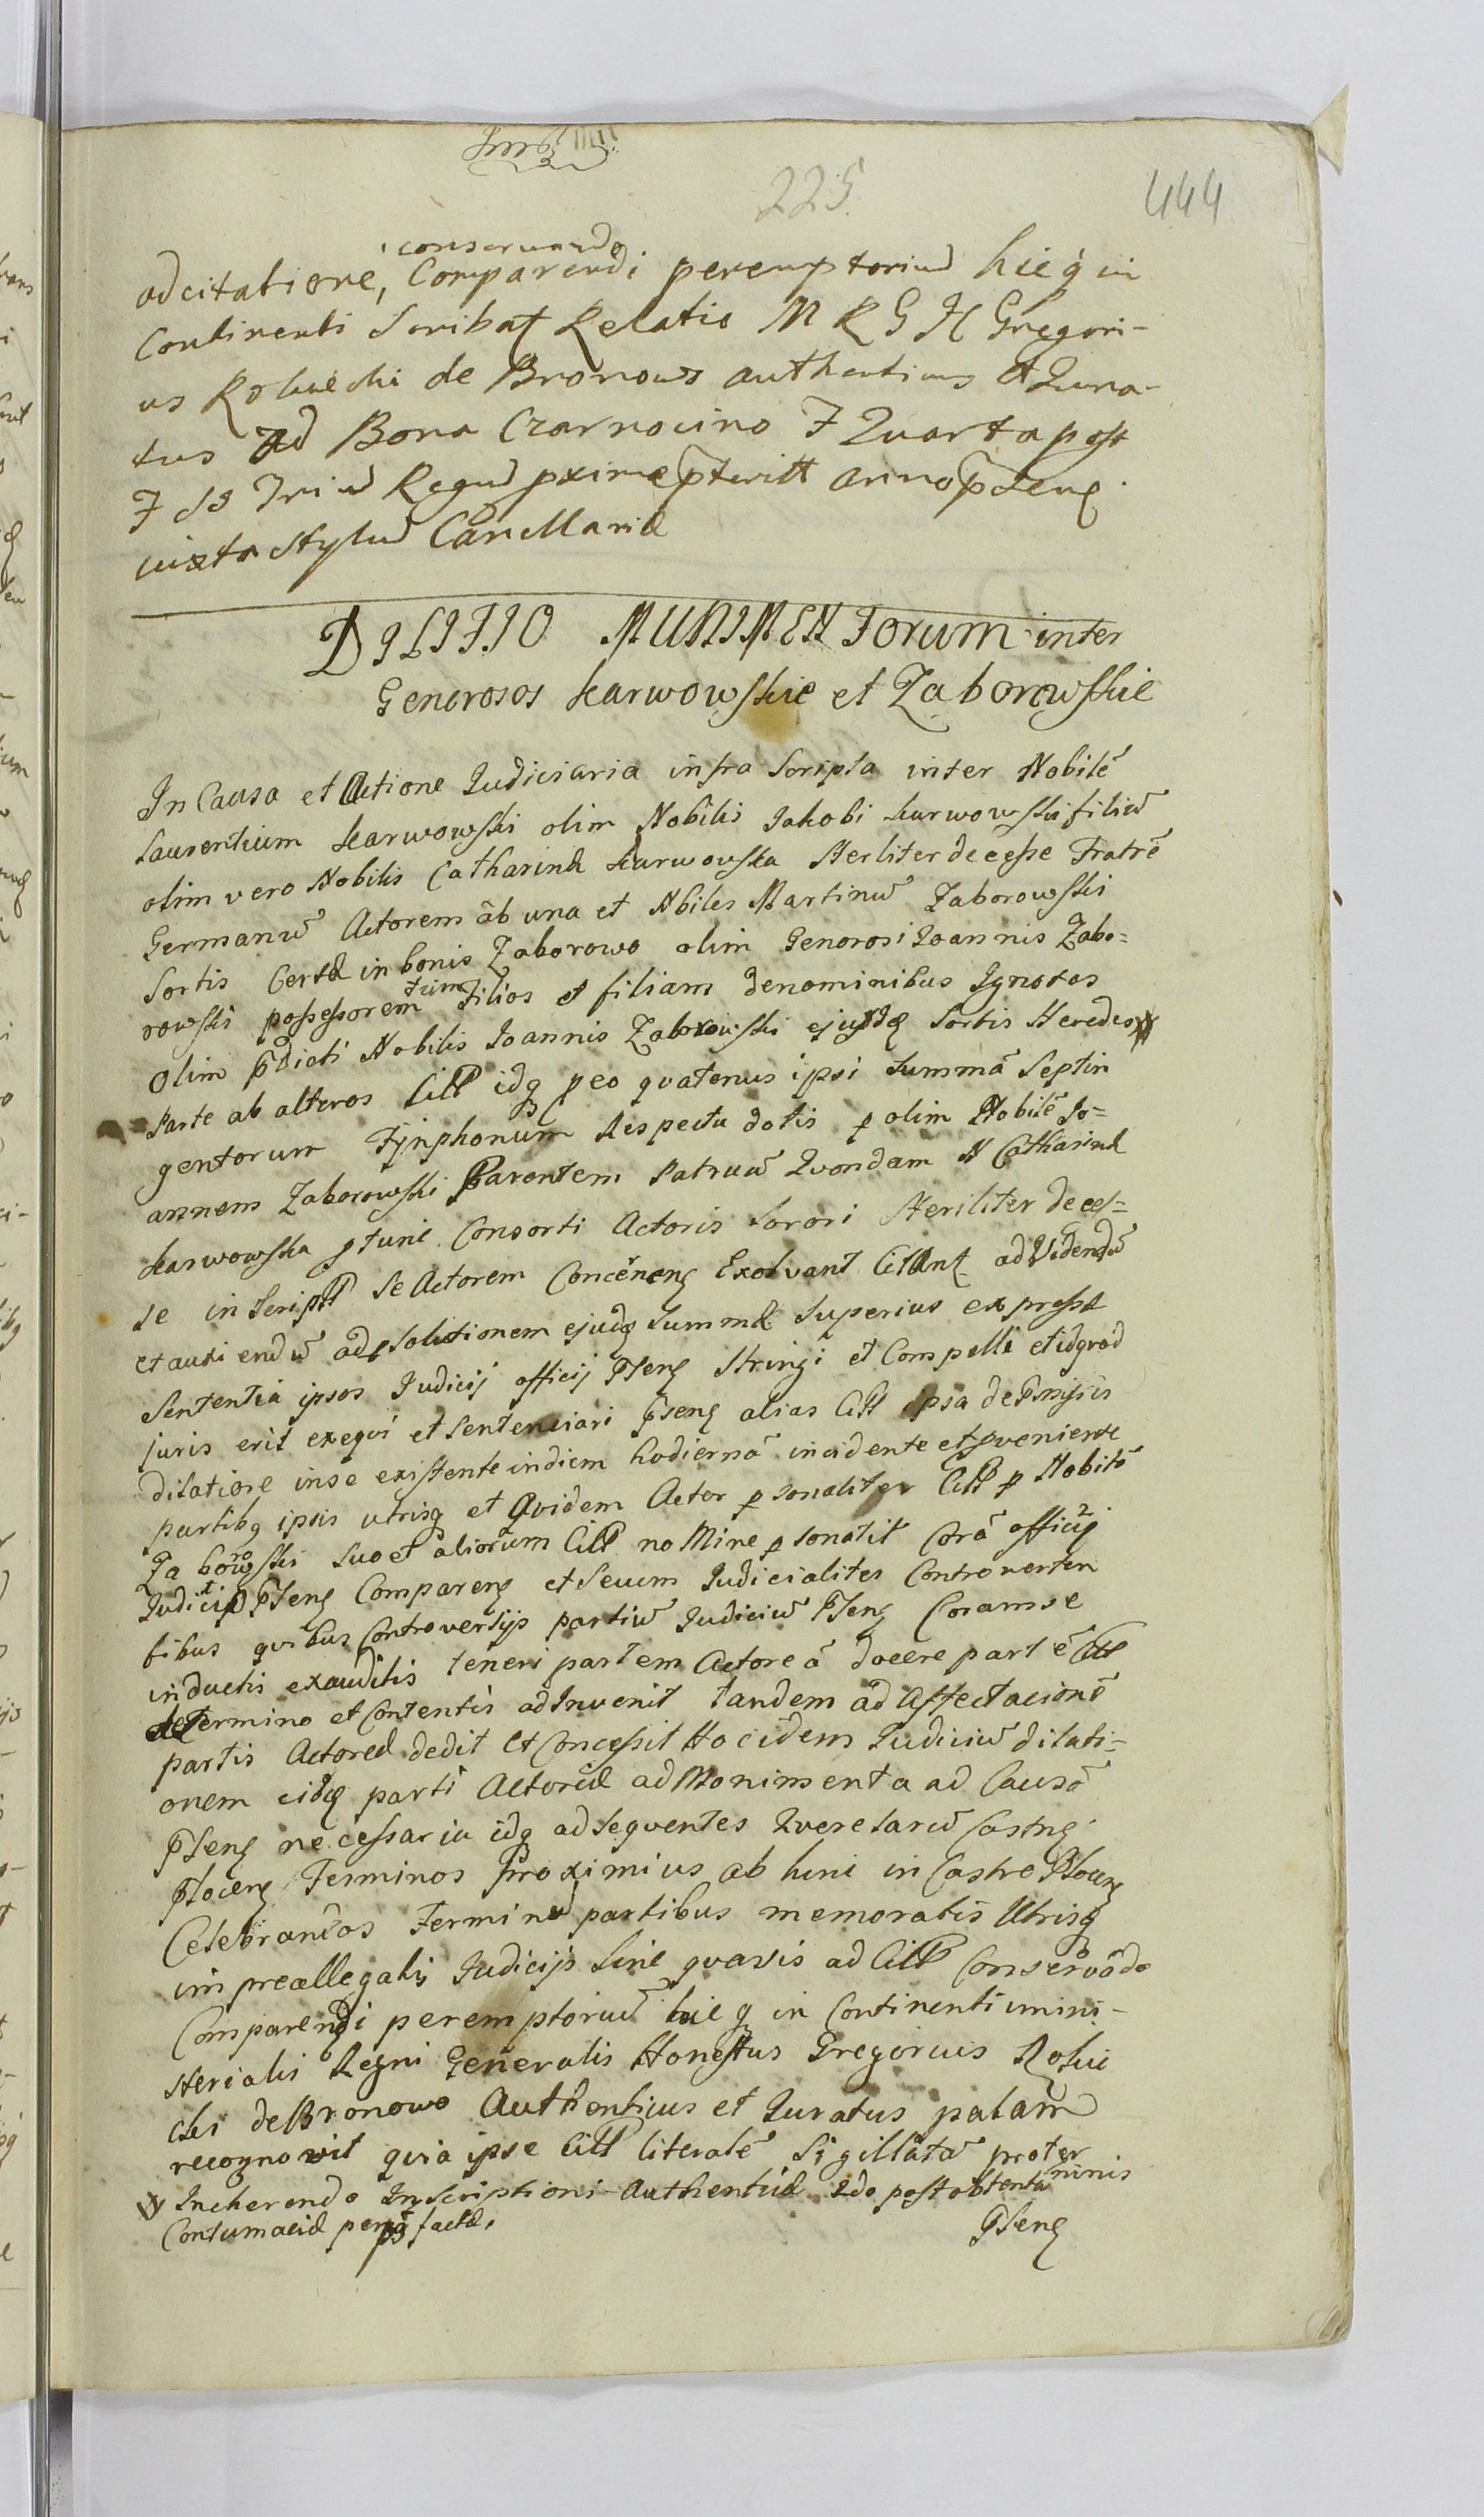 225
444
conservando
ad citatione, Comparendi peremptoriu hicq in
Continenti Scribat Relatio M R G H Gregori-
us Roluechi de Bronowo authenticus et Jura-
tus Ad Bona Czarnocino F Quarta post
F SS Triu Regu pxime pteritt anno psenq
iuxta stylu Cancellariæ
DILITIO MUNIMENTorum inter
Generosos karwowskie et Zaborowskie
In Causa et Actione Judiciaria infra Scripta inter Nobilē
Laurentium karwowski olim Nobilis Jakobi karwowski filiū
olim vero Nobilis Catharinæ karwowska Sterliter decesse Fratrē
Germanū Actorem ab una et Nbiles Martinū Zaborowski
Sortis Certæ in bonis Zaborowo olim Generosi Joannis Zabo=
rowski possessorem tum Filios et filiam de nominibus Ignotos
Olim pdicti Nobilis Joannis Zaborowski ejusdq Sortis Heredes
Parte ab alteros Citt idq peo quatenus ipsi Summā Septin
gentorum Tynphonum Respectu dotis p olim Nobilē Jo=
annem Zaborowski Parentem Patruū Quondam N Catharinæ
karwowska ptunc Consorti Actoris Sorori Steriliter deces=
se in script Se Actorem Concernenq Exolvant Citant ad Videndū
et audiendū ad psolutionem ejusdq Summæ Superius expressæ
Sententiā ipsos Judicij officij Psenq Stringi et Compelli et idquod
juris erit exequi et Sentenciari psenq alias Citt ipsa de Pmissis
dilatione in se existente in diem hodiernā incidente et pveniente
partibq ipsis utrisq et Quidem Actor psonaliter Citt p Nobilē
Zaborowski Suo et aliorum Citt no Mine psonalit Corā officij
Judicio Psenq Comparenq et Secum Judicialiter Controverten
tibus quibus Controversijs partiū Judiciū Psenq Coram se
inductis exauditis teneri partem Actoreā docere partē Citt
de Termino et Contentis ad Invenit tandem ad Affectacionē
partis Actoreæ dedit et Concessit Hoc idem Judiciū dilati=
onem eidq parti Actoreæ ad Monimenta ad Causā
Psenq necessaria idq ad sequentes Querelarū Castrq
Plocenq Terminos Proximius ab hinc in Castro Plocenq
Celebrandos Terminū partibus memoratis Utrisq
im preallegatis Judicijs Sine quavis ad Citt Conservādo
Comparendi peremptoriū hicq in Continenti mini-
sterialis Regni Generalis Honestus Gregorius Roluc
cki de Bronowo Authenticus et Juratus palam
recognovit quia ipse Citt literalē Sigillatā proter
Inherendo Inscriptioni Authenticæ Ido post obtentu
Contumaciæ penā factæ,
Psenq